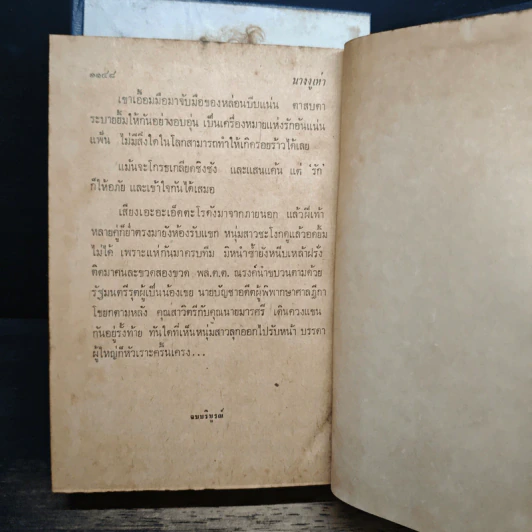 ๑๑๔๔
นางงูเห่า
เขาเอื้อมมือมาจับมือของหล่อนบีบแน่น ตาสบตา
ระบายยิ้มให้กันอย่างอบอุ่น เป็นเครื่องหมายแห่งรักอันแน่น
แฟ้น ไม่มีสิ่งใดในโลกสามารถทำให้เกิดรอยร้าวได้เลย
แม้นจะโกรธเกลียดชิงชัง และแสนแค้น แต่ ‘รัก’
ก็ให้อภัย และเข้าใจกันได้เสมอ
เสียงเอะอะเอ็ดตะโรดังมาจากภายนอก แล้วฝีเท้า
หลายคู่ก็ย่ำตรงมายังห้องรับแขก หนุ่มสาวชะโงกดูแล้วอดยิ้ม
ไม่ได้ เพราะแห่กันมาครบทีม มิหนำซ้ำยังหนีบเหล้าฝรั่ง
ติดมาคนละขวดสองขวด พล.ต.ต. ณรงค์นำขบวนตามด้วย
รัฐมนตรีรุตผู้เป็นน้องเขย นายบัญชาอดีตผู้พิพากษาศาลฎีกา
โขยกตามหลัง คุณสาวิตรีกับคุณนายมารศรี เดินควงแขน
กันอยู่รั้งท้าย ทันใดที่เห็นหนุ่มสาวลุกออกไปรับหน้า บรรดา
ผู้ใหญ่ก็หัวเราะครื้นเครง...
จบบริบูรณ์